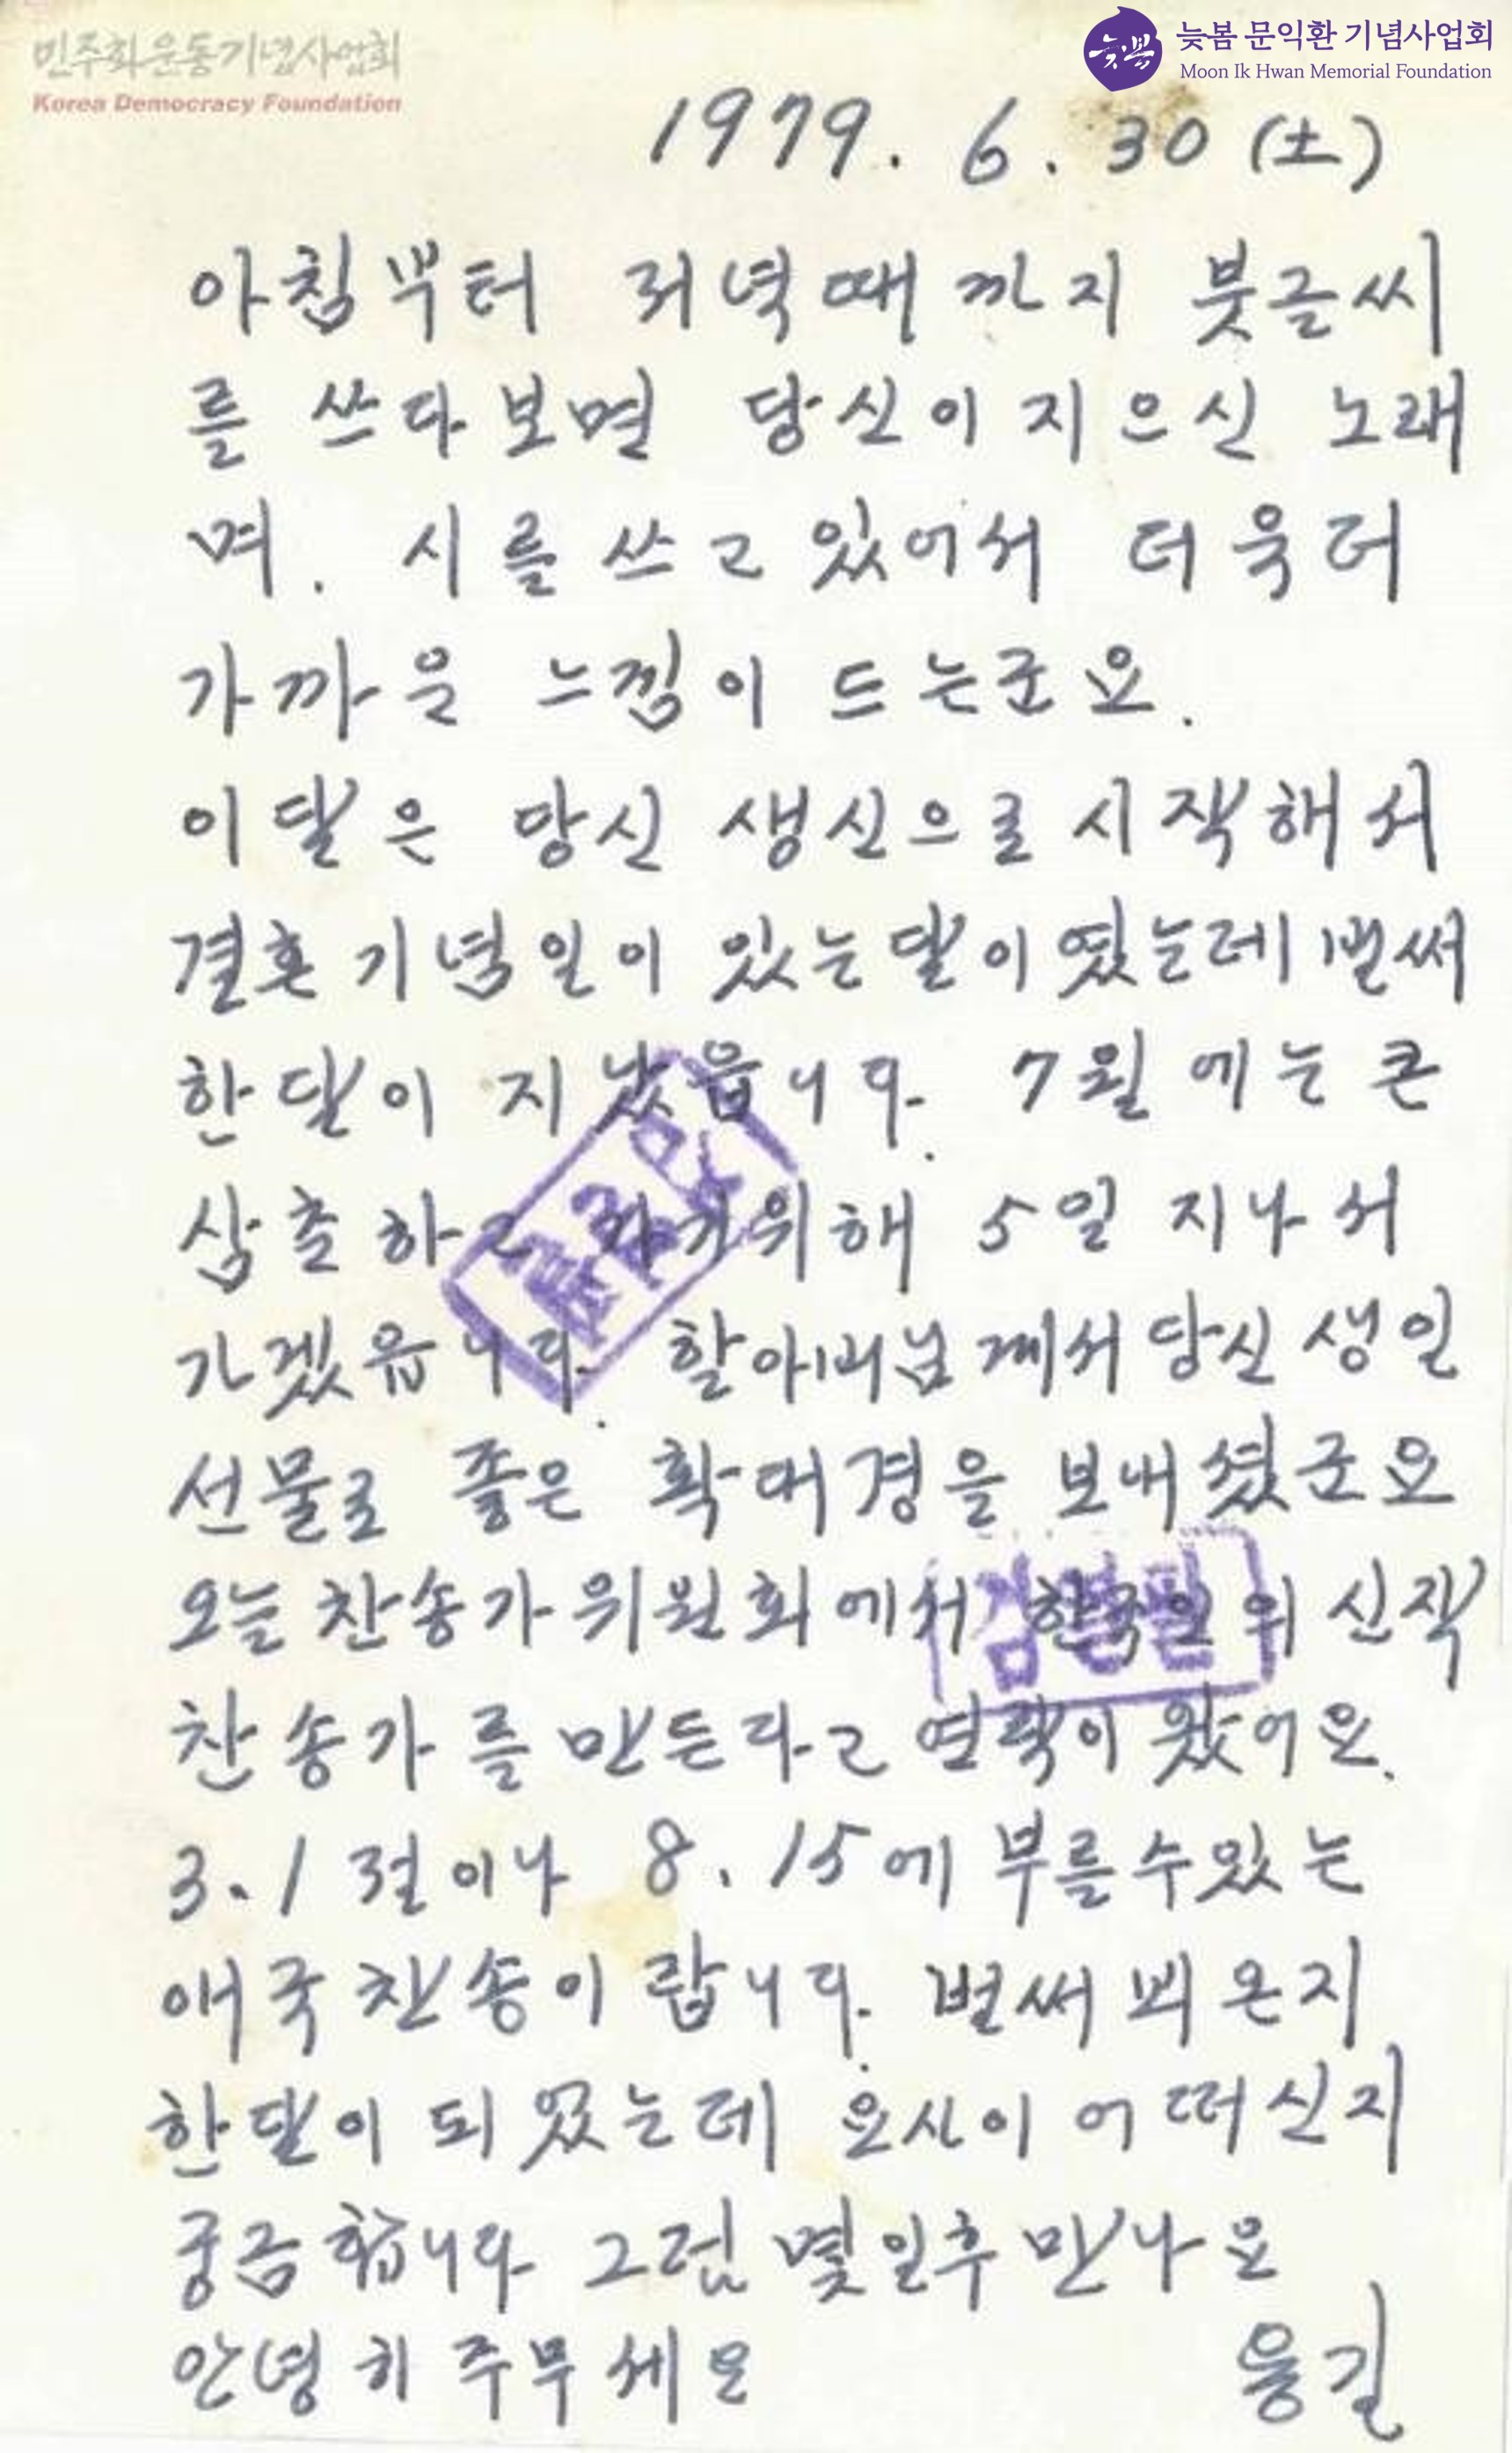 민주화운동기념사업회
Korea Democracy Foundation
늦봄 문익환 기념사업회
Moon Ik Hwan Memorial Foundation
늦봄
1979. 6. 30 (土)
아침부터 저녁때 까지 붓글씨
를 쓰다보면 당신이 지으신 노래
며. 시를 쓰고 있어서 더욱더
가까운 느낌이 드는군요.
이달은 당신 생신으로 시작해서
결혼기념일이 있는달이였는데 벌써
한달이 지났읍니다. 7월에는 큰
삼촌하고 가기위해 5일 지나서
가겠읍니다. 할아버님께서 당신 생일
선물로 좋은 확대경을 보내셨군요
오늘 찬송가위원회에서 한국인의 신작
찬송가를 만든다고 연락이 왔어요.
3.1절이나 8.15에 부를수있는
애국찬송이랍니다. 벌써 뵈온지
한달이 되였는데 요사이 어떠신지
궁금합니다 그럼 몇일후 만나요
안녕히 주무세요 용길
검열필